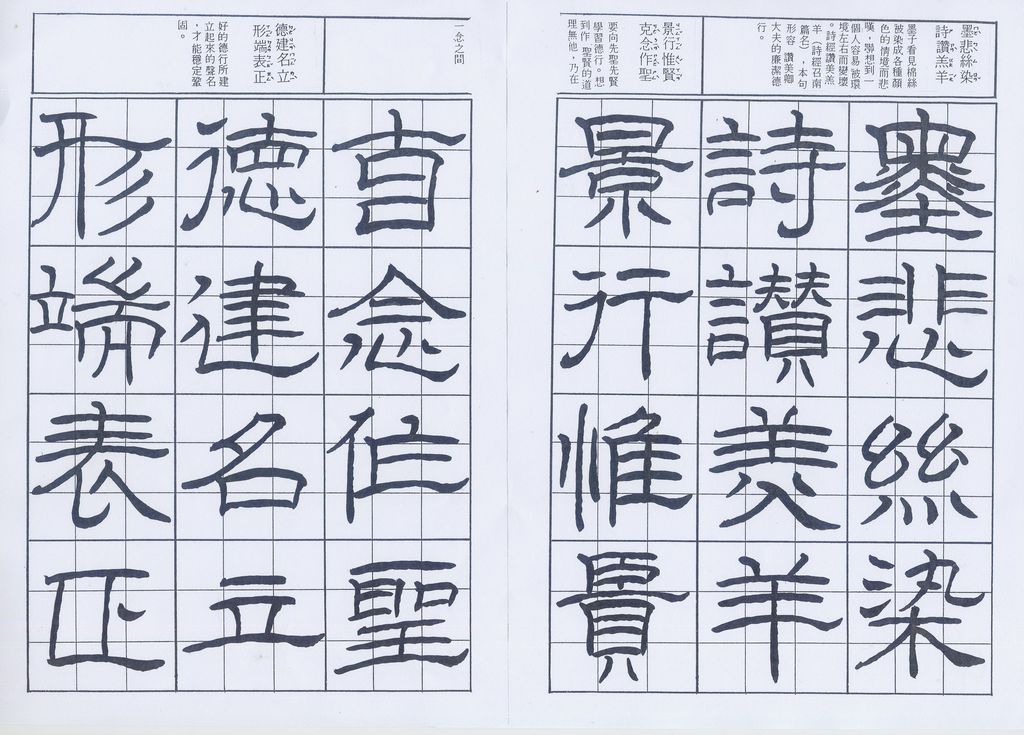 墨悲絲染
詩讚羔羊
墨子看見棉絲
被染成各種顏
色的情境而悲
嘆，聯想到一
個人容易 被環
境左右而變壞
。詩經讚美羔
羊（詩經召南
篇名），本句
形容 讚美卿
大夫的廉潔德
行。
景行惟賢
克念作聖
要向先聖先賢
學習德行。想
到作 聖賢的道
理無他，乃在
一念之間
德建名立
形端表正
好的德行所建
立起來的聲名
，才能穩定鞏
固。
墨悲絲染
詩讚羔羊
景行惟賢
克念作聖
德建名立
形端表正